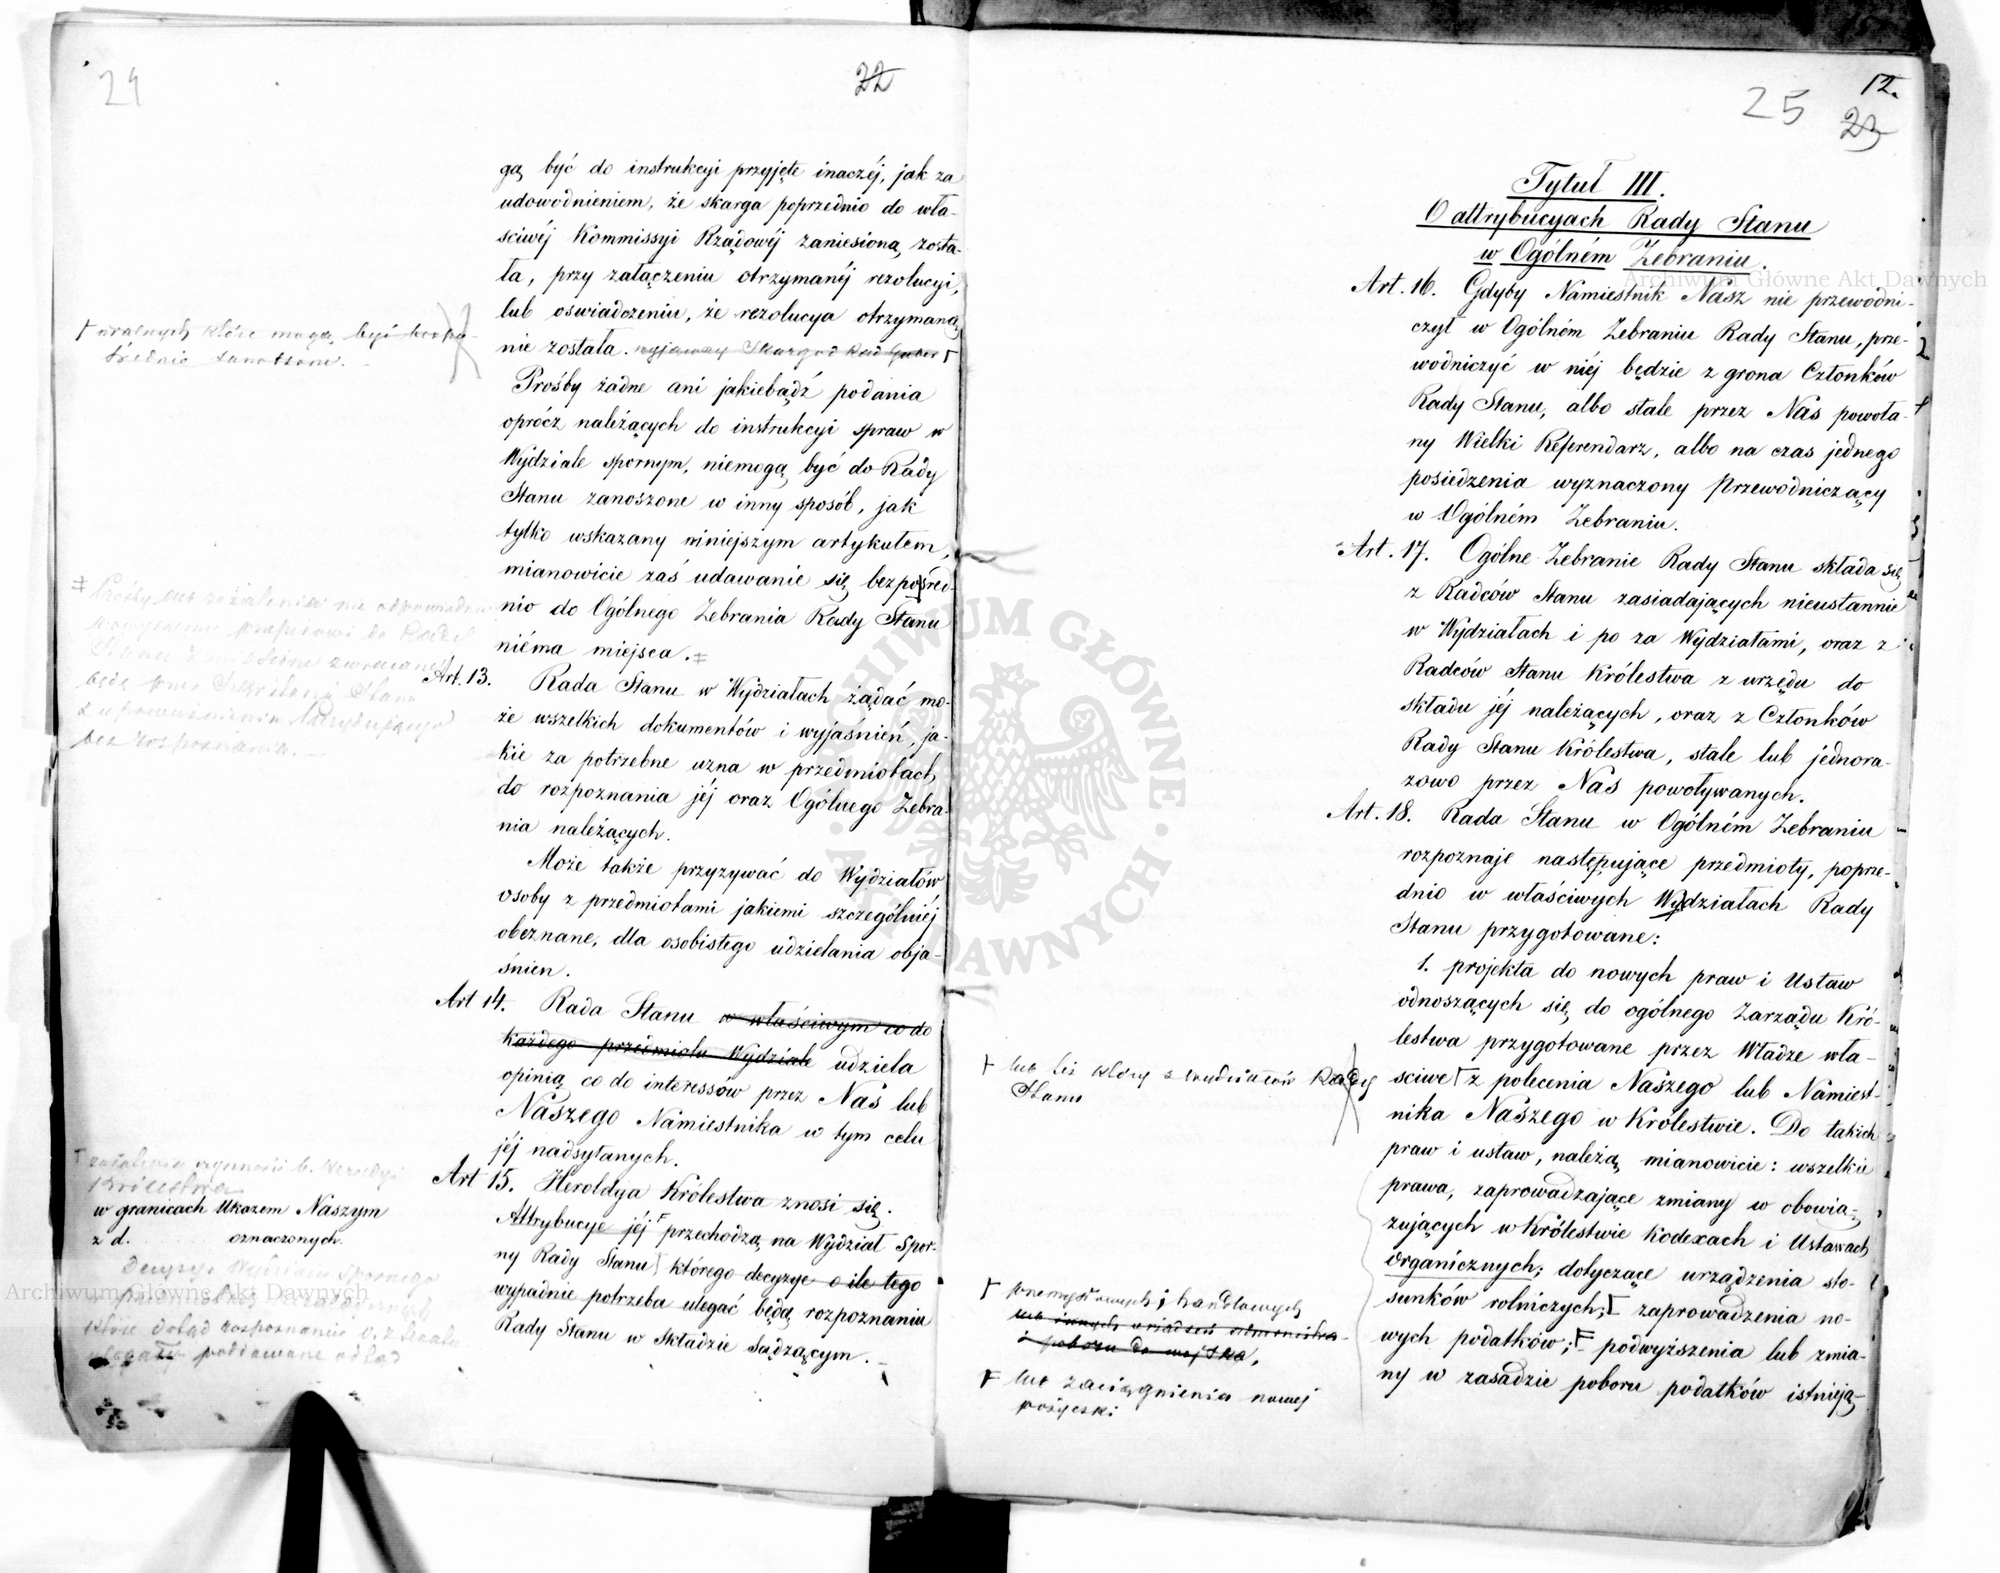 24
22
gą być do instrukcyi przyjęte inaczéj, jak za
udowodnieniem, że skarga poprzednio do wła-
sciwéj Kommissyi Rządowéj zaniesioną zosta-
ła, przy załączeniu otrzymanéj rezolucyi,
lub oswiadczeniu, że rezolucya otrzymaną
nie została.
Prośby żadne ani jakiebądź podania
oprócz należących do instrukcyi spraw w
Wydziale spornym, niemogą być do Rady
Stanu zanoszone w inny sposób, jak
tylko wskazany niniejszym artykułem,
mianowicie zaś udawanie się bezpośred-
nio do Ogólnego Zebrania Rady Stanu
niéma miejsca.
Art. 13. Rada Stanu w Wydziałach żądać mo-
że wszelkich dokumentów i wyjaśnień, ja-
kie za potrzebne uzna w przedmiotach
do rozpoznania jéj oraz Ogólnego Zebra-
nia należących.
Może także przyzywać do Wydziałów
osoby z przedmiotami jakiemi szczególniéj
obeznane, dla osobistego udzielania obja-
śnien.
Art 14. Rada Stanu w właściwym co do
każdego przedmiotu Wydziale udziela
opinią co do interessów przez Nas lub
Naszego Namiestnika w tym celu
jéj nadsyłanych.
Art 15. Heroldya Królestwa znosi się.
Attrybucye jéj przechodzą na Wydział Spor-
ny Rady Stanu którego decyzye o ile tego
wypadnie potrzeba ulegać będą rozpoznaniu
Rady Stanu w Składzie Sądzącym.
wralnych które mogą być
w granicach Ukazem Naszym
z d. oznaczonych.
12.
25
23
Tytuł III.
O attrybucyach Rady Stanu
w Ogólném Zebraniu.
Art. 16. Gdyby Namiestnik Nasz nie przewodni-
czył w Ogólném Zebraniu Rady Stanu, prze-
wodniczyć w niéj będzie z grona Członków
Rady Stanu, albo stale przez Nas powoła-
ny Wielki Referendarz, albo na czas jednego
posiedzenia wyznaczony Przewodniczący
w Ogólném Zebraniu.
Art. 17. Ogólne Zebranie Rady Stanu składa się
z Radców Stanu zasiadających nieustannie
w Wydziałach i po za Wydziałami, oraz z
Radców Stanu Królestwa z urzędu do
składu jéj należących, oraz z Członków
Rady Stanu Królestwa, stale lub jednora-
zowo przez Nas powoływanych.
Art. 18. Rada Stanu w Ogólném Zebraniu
rozpoznaje następujące przedmioty, poprze-
dnio w właściwych Wydziałach Rady
Stanu przygotowane:
1. projekta do nowych praw i Ustaw
odnoszących się do ogólnego Zarządu Kró-
lestwa przygotowane przez Władze wła-
sciwe z polecenia Naszego lub Namiest-
nika Naszego w Królestwie. Do takich
praw i ustaw, należą mianowicie: wszelkie
prawa, zaprowadzające zmiany w obowią-
zujących w Królestwie Kodexach i Ustawach
Organicznych; dotyczące urządzenia sto-
sunków rolniczych; zaprowadzenia no-
wych podatków; podwyższenia lub zmia-
ny w zasadzie poboru podatków istnieją-
lub też który z wydziałów Rady
Stanu
przemysłowych i handlowych
i poboru do wojska,
lub zaciągnienia nowej
pożyczki
ARCHIWUM GŁÓWNE AKT DAWNYCH
Archiwum Główne Akt Dawnych
Archiwum Główne Akt Dawnych